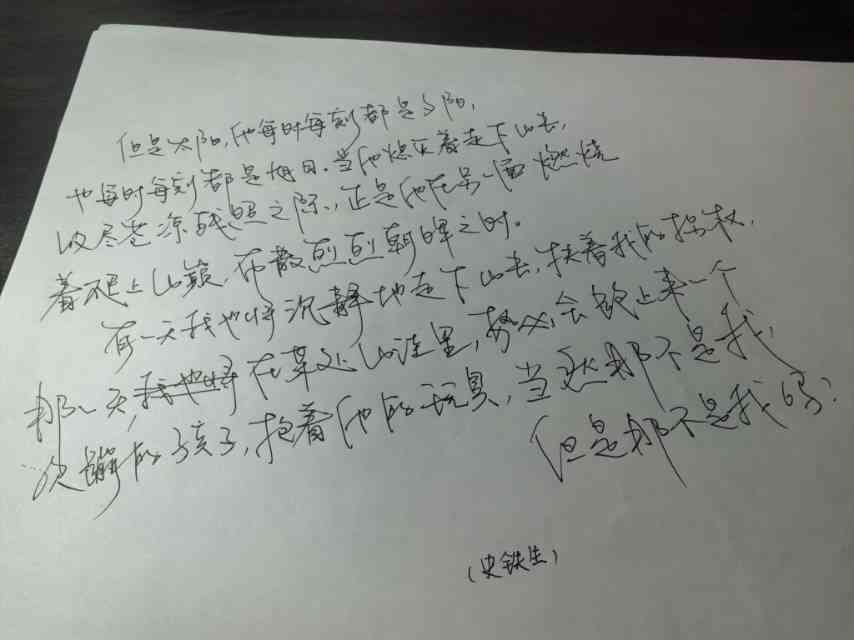 但是太阳,他每时每刻都是夕阳,
也每时每刻都是旭日。当他熄灭着走下山去,
收尽苍凉残照之际,正是他在另一面燃烧
着爬上山巅,布散烈烈朝晖之时。
有一天我也将沉静地走下山去,扶着我的拐杖,
那一天,我也将在某处山洼里,势必会跑上来一个
欢蹦的孩子,抱着他的玩具,当然那不是我,
但是那不是我吗?
(史铁生)